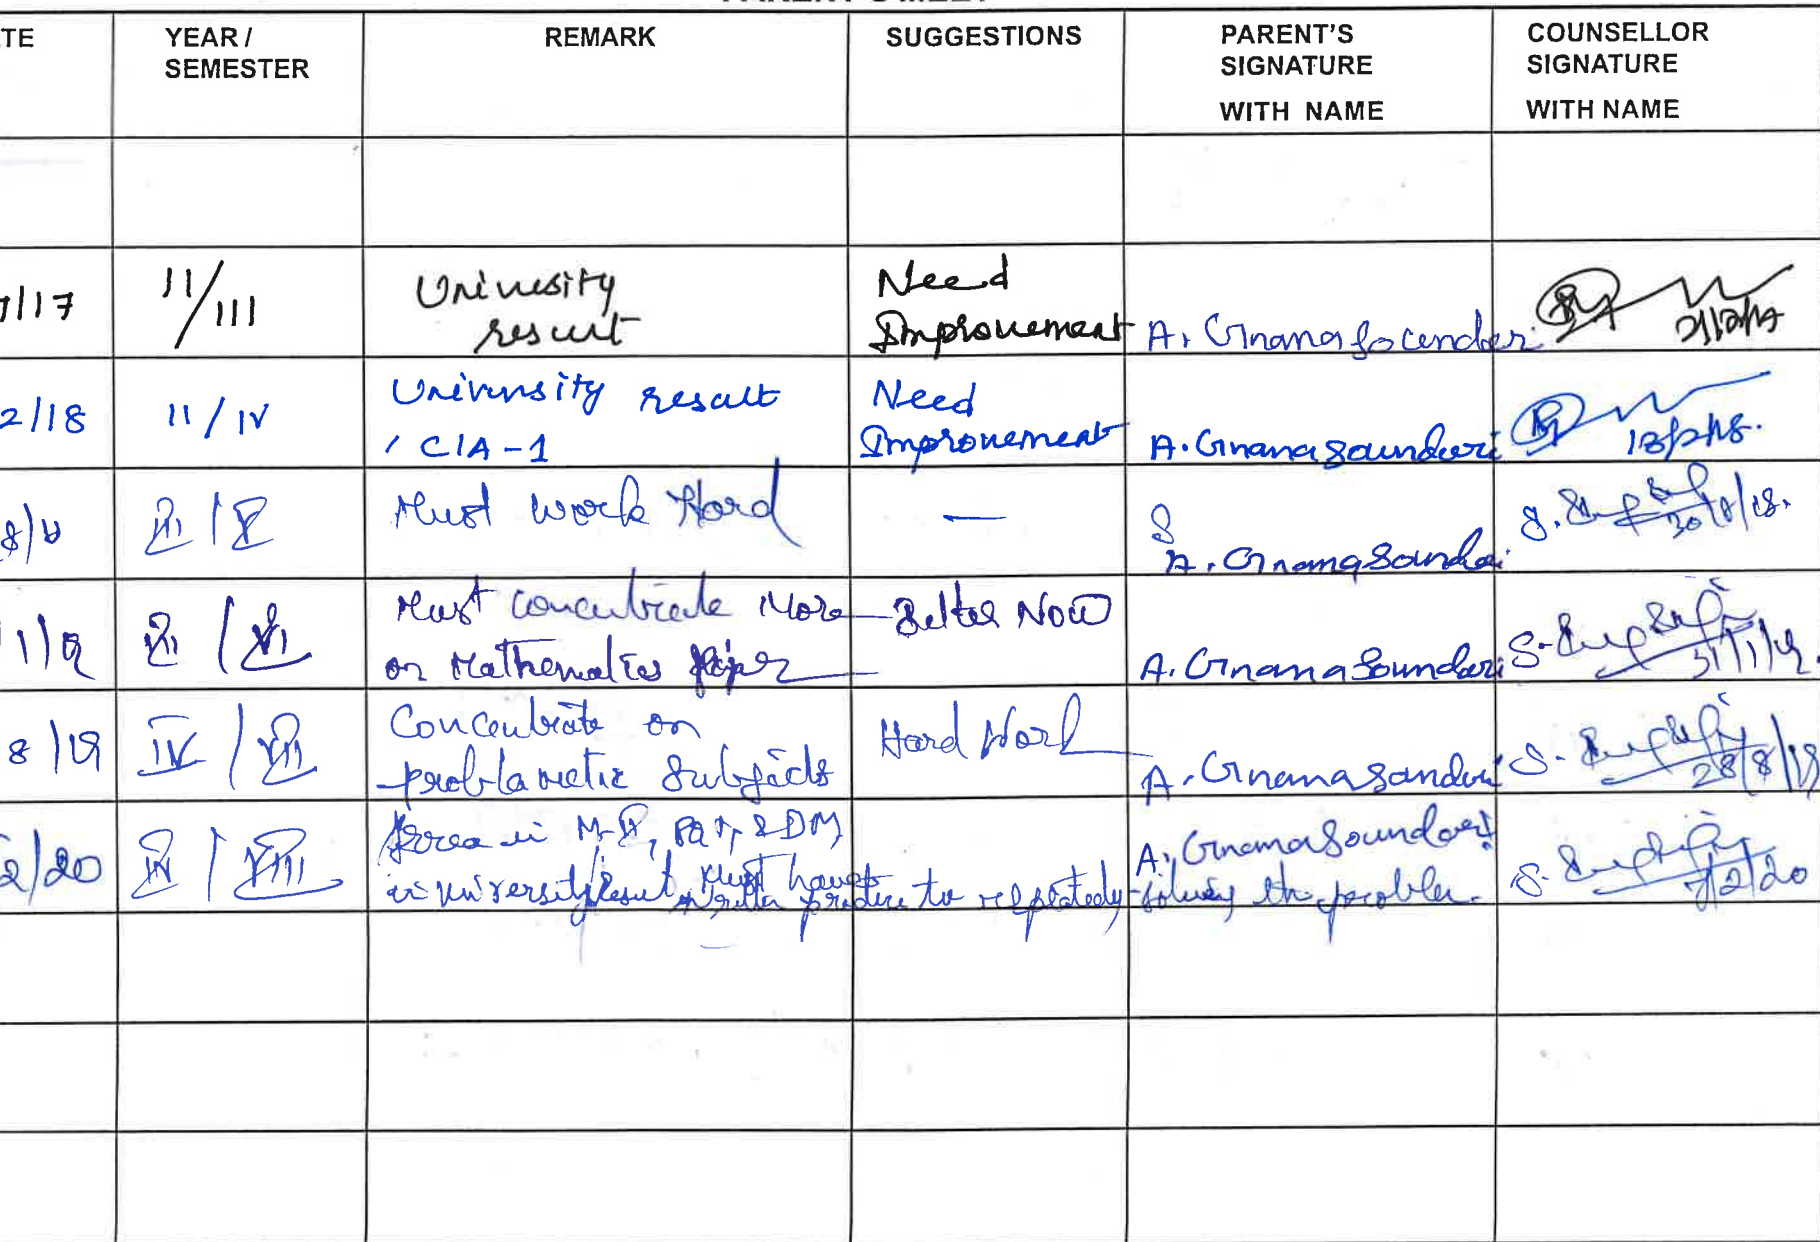 PARENT'S MEET
TE YEAR / SEMESTER REMARK SUGGESTIONS PARENT'S SIGNATURE WITH NAME COUNSELLOR SIGNATURE WITH NAME
/17 II/III University result Need Improvement A. Gnanasoundari
2/18 II / IV University result / CIA-1 Need Improvement A. Gnanasoundari 13/2/18.
8/ III / V Must work Hard — A. Gnanasoundari S. 30/8/18.
1/19 III / VI Must concentrate More on Mathematics paper Better Now A. Gnana Soundari S. 31/1/19.
8/19 IV / VII Concentrate on problametic Subjects Hard Work A. Gnanasoundari S. 28/8/19
2/20 IV / VIII Area in & DM A. Gnana Soundari S. 7/2/20
in university Result must have practice to solving the problem.